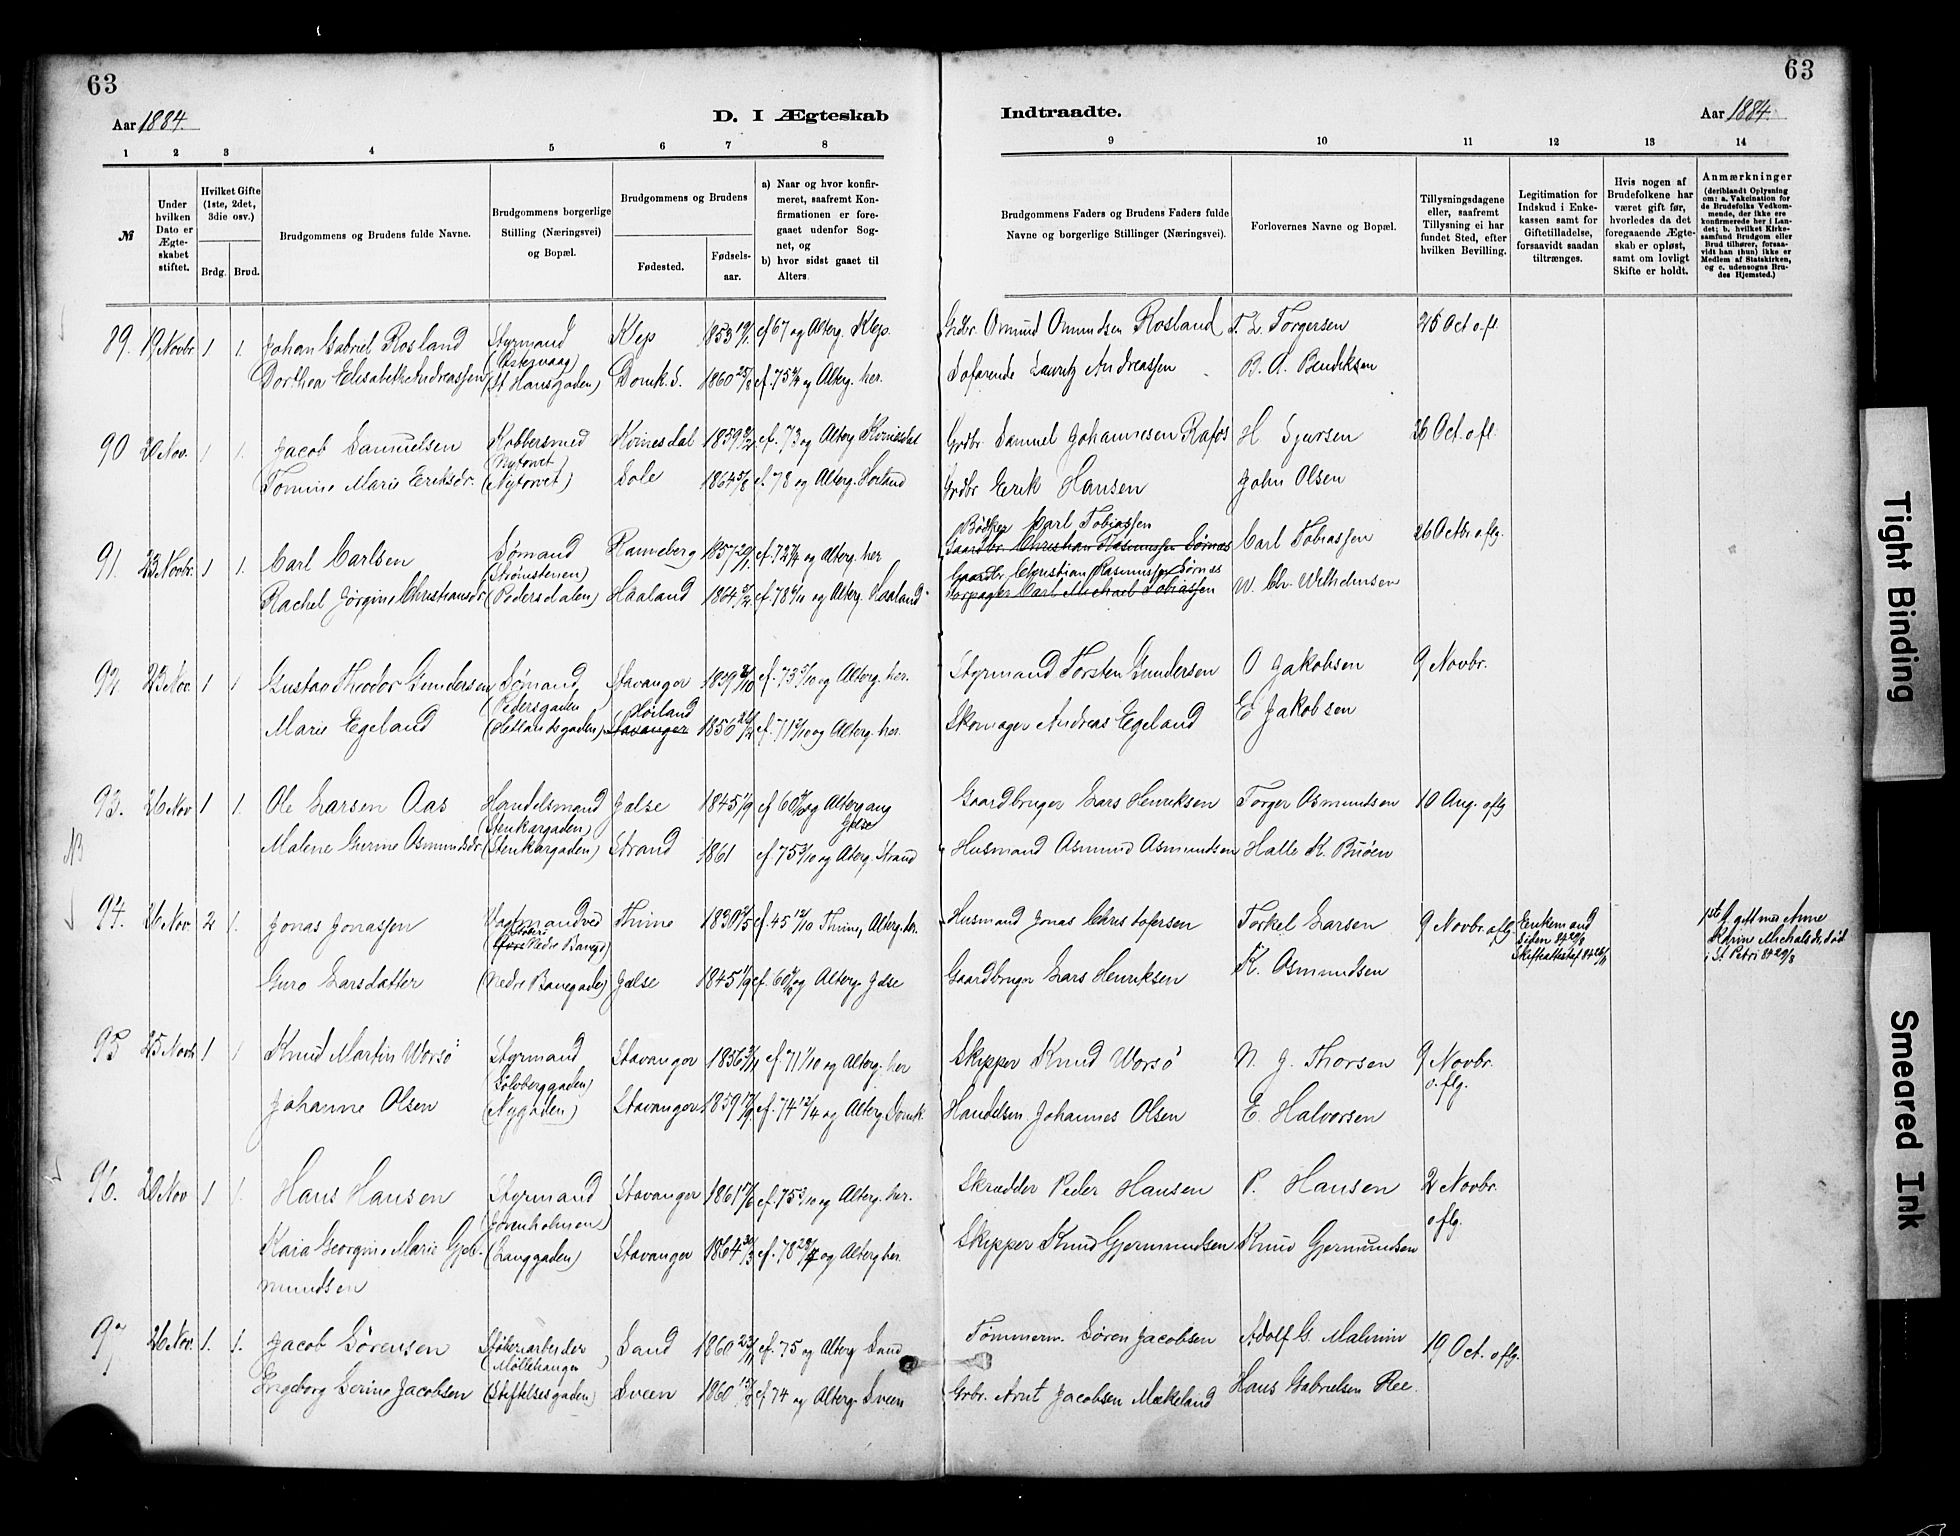 63
63
Aar 1884.
D. I Ægteskab
Indtraadte.
Aar 1884.
1 2 3 4 5 6 7 8 9 10 11 12 13 14
№
Under hvilken Dato er Ægteskabet stiftet.
Hvilket Gifte (1ste, 2det, 3die osv.)
Brdg. Brud.
Brudgommens og Brudens fulde Navne.
Brudgommens borgerlige Stilling (Næringsvei) og Bopæl.
Brudgommens og Brudens
Fødested.
Fødselsaar.
a) Naar og hvor konfirmeret, saafremt Konfirmationen er foregaaet udenfor Sognet, og
b) hvor sidst gaaet til Alters.
Brudgommens Faders og Brudens Faders fulde Navne og borgerlige Stillinger (Næringsvei).
Forlovernes Navne og Bopæl.
Tillysningsdagene eller, saafremt Tillysning ei har fundet Sted, efter hvilken Bevilling.
Legitimation for Indskud i Enkekassen samt for Giftetilladelse, forsaavidt saadan tiltrænges.
Hvis nogen af Brudefolkene har været gift før, hvorledes da det foregaaende Ægteskab er opløst, samt om lovligt Skifte er holdt.
Anmærkninger
(deriblandt Oplysning om: a. Vakcination for de Brudefolks Vedkommende, der ikke ere konfirmerede her i Landet; b. hvilket Kirkesamfund Brudgom eller Brud tilhører, forsaavidt han (hun) ikke er Medlem af Statskirken, og c. udensogns Brudes Hjemsted.)
89. 19 Novbr. 1. 1. Johan Gabriel Rosland Styrmand Klep 1853 19/1 cf 67 og Alterg. Klep. Grdbr. Omund Omundsen Rosland T. L. Torgersen 26 Oct o.fl.
(Østervaag)
Dorthea Elisabethe Andreassen (St Hansgaden) Domk. S. 1860 25/8 cf. 75 og Alterg. her. Søfarende Lauritz Andreassen B. A. Bendiksen
90 20 Nov. 1 1. Jacob Samuelsen Kobbersmed Kvinesdal 1859 cf. 73 og Alterg Kvinesdal Grdbr. Samuel Johannesen Rafos H Sjursen 26 Oct. o fl.
(Nytorvet)
Tomine Marie Eriksdr. (Nytorvet) Sole 1864 5/8 cf. 78 og Alterg. Høiland Grdbr Erik Hansen John Olsen
Bødker Carl Tobiassen
91. 23 Novbr. 1 1. Carl Carlsen Sømand Renneberg 1857 29/1 cf. 72 og Alterg. her Gaardbr. Christian Rasmussen Sørnes Carl Tobiassen 26 Octbr. o flg.
(Strømstenen) Gaardbr Christian Rasmussen Sørnes
Rachel Jørgine Christiansdr (Pedersdalen) Haaland 1864 cf. 78 og Alterg. Haaland Carl Michael Tobiassen W. Chr. Wilhelmsen
92 23 Nov. 1 1 Gustav Theodor Gundersen Sømand Stavanger 1859 cf. 73 5/10 og Alterg. her. Styrmand Torsten Gundersen O Jakobsen 9 Novbr.
(Pedersgaden Høiland
Marie Egeland (Hetlandsgaden) Stavanger 1856 cf. 71 og Alterg. her. Skomager Andreas Egeland E Jakobsen
93. 26 Nov 1 1. Ole Larsen Aas Handelsmand Jelse 1845 1/9 cf 60 og Alterg ang Jelse Gaardbruger Lars Henriksen Torger Osmundsen 10 Aug. o flg
(Stenkargaden)
NB Malene Gurine Osmundsdr. (Stenkargaden) Strand 1861 cf. 75 3/10 og Alterg. Strand Husmand Osmund Osmundsen Halle K. Buøen
94. 26 Nov 2 1. Jonas Jonassen Vagtmand ved Thime 1830 cf. 45 12/10 Thime, Alterg. her. Husmand Jonas Christofersen Torkel Larsen 9 Novbr. o flg Enkemand siden 84 29/8 Skifteattest af 84 26/11 1ste G gift med Anne Karin Michalsdr. død i St Petri 84 29/8
(Nedre Banegd)
Guro Larsdatter (Nedre Banegade) Jelse 1845 1/9 cf. 60 og Alterg. Jelse Gaardbruger Lars Henriksen K. Osmundsen
95 25 Novbr 1 1 Knud Martin Worsö Styrmand Stavanger 1856 cf. 71 1/10 og Alterg. her Skipper Knud Worsö N. J. Thorsen 9 Novbr. o. flg.
(Sølvberggaden)
Johanne Olsen (Nygaden) Stavanger 1859 cf. 74 12/4 og Alterg Domk Handelsm Johannes Olsen E. Halvorsen
96. 20 Nov 1 1. Hans Hansen Styrmand Stavanger 1861 cf. 75 3/10 og Alterg. her. Skrædder Peder Hansen P. Hansen 2 Novbr. o flg.
(Jorenholmen)
Kaia Georgine Marie Gjer- (Langgaden) Stavanger 1864 30/3 cf. 78 og Alterg her. Skipper Knud Gjermundsen Knud Gjermundsen
mundsen
97 26 Nov. 1. 1. Jacob Sørensen Støberiarbeider Sand 1860 23/11 cf. 75 og Alterg Sand Tømmerm. Søren Jacobsen Adolf G. Malmin 19 Oct. o flg.
(Møllehaugen)
Engeborg Serine Jacobsen (Stiftelsesgaden) Sveen 1860 cf 74 og Alterg. Sveen Grbr. Arnt Jacobsen Mækeland Hans Gabrielsen Ree.
Tight Binding
Smeared Ink